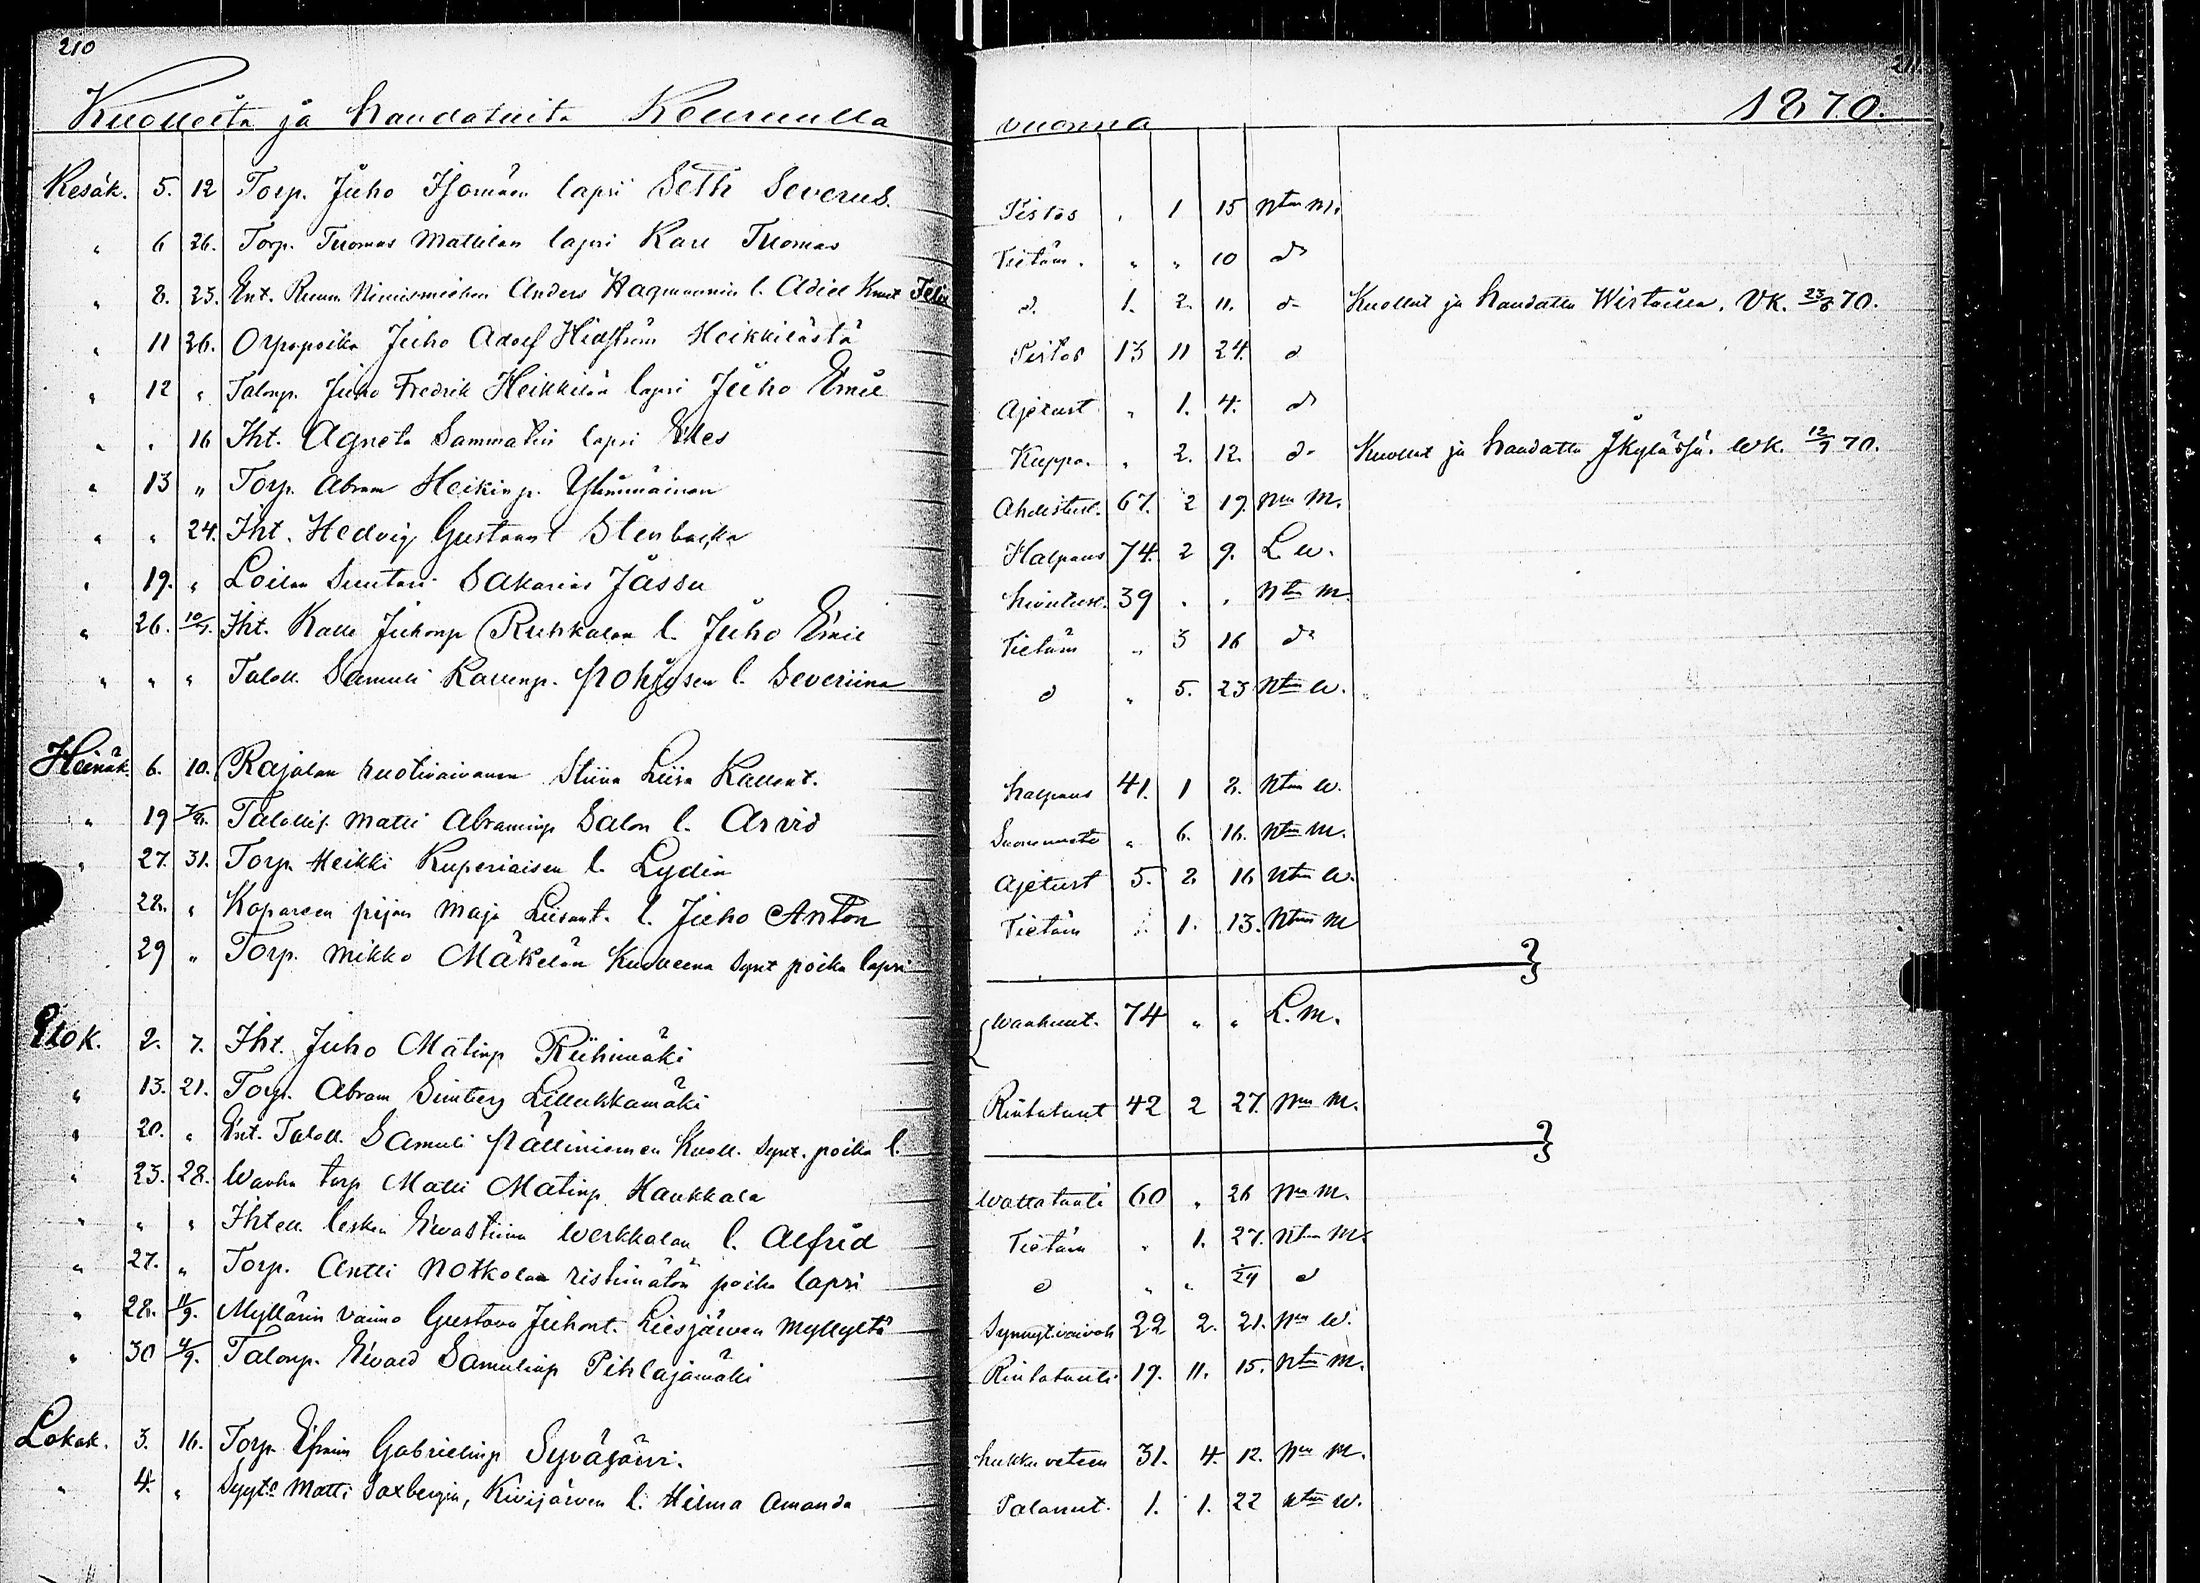 210
211
Kuolleita ja haudatuita Keuruulla vuonna 1870.
Kesäk. 5. 12 Torp. Juho Isomäen lapsi Seth Severus. Pistos " 1 15 Ntön M.
" 6 26. Torp. Tuomas Mattilan lapsi Karl Tuomas Tietäm. " " 10 do
" 8. 23. Ent. Ruun. Nimismiehen Anders Hagmannin l. Adiel Knut Felix d. 1. 2. 11. d- Kuollut ja haudattu Wirtailla. VK. 23/8 70.
" 11 26. Orpopoika Juho Adolf Hidström Heikkilästä Pistos 13 11 24. d
" 12 " Talonp. Juho Fredrik Heikkilän lapsi Juho Emil Ajetust " 1. 4. do
" " 16 Iht. Agneta Sammatin lapsi Kuppa. " 2. 12. d- Kuollut ja haudattu Jkylässä. WK. 12/9 70.
" 13 " Torp. Abram Heikinp. Ylimmäinen Ahdistus. 67. 2 19. Nun M.
" " 24. Iht. Hedvig Gustaant Stenbacka Halpaus 74. 2 9. L W.
" 19. " Loilan Suutari Sakarias Jässu 39 " " Ntön M.
" 26. 10/7. Iht. Kalle Juhonp Ruhkalan l. Juho Emil Tietäm " 3 16 do
" " " Taloll. Samuli Kallenp. Pohjosen l. Severiina d " 5. 23 Ntön W.
Heinäk. 6. 10. Rajalan ruotivaivanen Stiina Liisa Kallent. halpaus 41. 1 8. Ntön W.
" 19 Talollis. Matti Abraminp Salon l. Arvid " 6. 16. Ntön M.
" 27. 31. Torp. Heikki Kuperiaisen l. Lydia Ajetust 5. 2 16 Ntön W.
28. " Koparsen pijan Maja Liisant. l. Juho Anton Tietäm " 1. 13. Ntön M
29 " Torp. Mikko Mäkelän Kuolleena synt poika lapsi
Elok. 2. 7. Iht. Juho Matinp Riihimäki Wanhuut. 74 " " L. M.
" 13. 21. Torp. Abram Simberg Lillukkamäki Rintataut 42 2 27. Nun M.
" 20. " Ent. Taloll. Samuli Pälliniemen Kuoll. synt. poika l.
" 23. 28. Wanha torp Matti Matinp Haukkala Wattatauti 60 " 26 Nun M.
" " " Ihtell. lesken Ewastiina Werkkalan l. Alfrid Tietäm " 1. 27. Ntön M.
" 27. " Torp. Antti Notkolan ristimätön poika lapsi d " " 1/24 d
" 28. 11/9. Myllärin vaimo Gustava Juhont. Liesjärven Myllyltä Synnyt.vaivoh 22 2. 21. Nun W.
" 30 4/9. Talonp. Edvard Samulinp Pihlajamäki Rintatauti 19. 11. 15. Ntön M.
Lokak. 3. 16. Torp. Efraim Gabrielinp Syväjärvi. hukku veteen 31. 4. 12. Nun M.
" 4. " Matti Saxbergin, Kivijärven l. Hilma Amanda Palanut. 1. 1. 22 Ntön W.